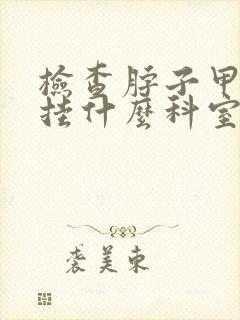 檢查脖子甲
挂什麼科室
袭美东